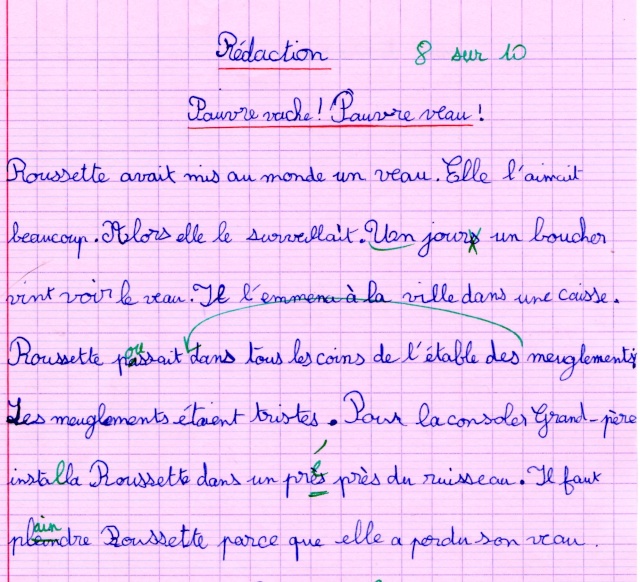 Rédaction 8 sur 10
Pauvre vache! Pauvre veau!
Roussette avait mis au monde un veau. Elle l'aimait
beaucoup. Alors elle le surveillait. Un jour un boucher
vint voir le veau. Il l'emmena à la ville dans une caisse.
Roussette poussait dans tous les coins de l'étable des meuglements
Les meuglements étaient tristes. Pour la consoler Grand-père
installa Roussette dans un pré près du ruisseau. Il faut
plaindre Roussette parce que elle a perdu son veau.